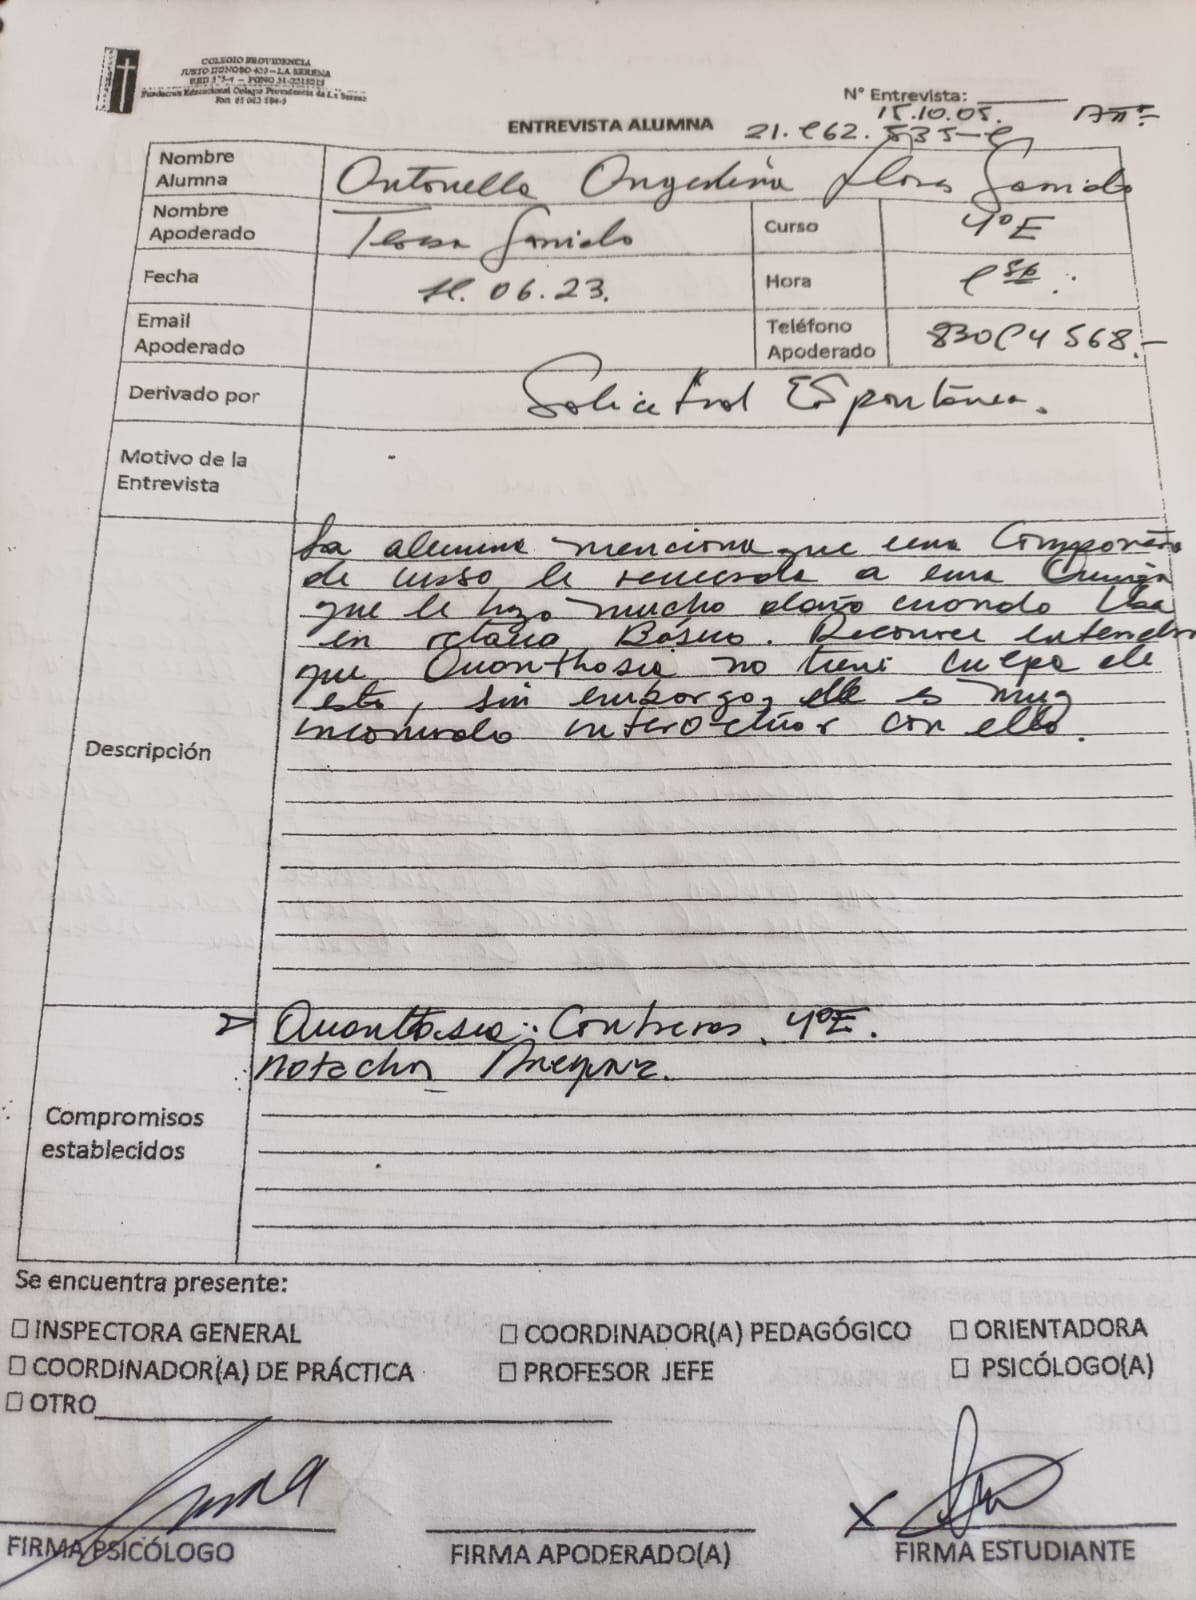 COLEGIO PROVIDENCIA
JUSTO DONOSO 420 - LA SERENA
Fundación Educacional Colegio Providencia de La Serena
N° Entrevista:
15.10.05.
ENTREVISTA ALUMNA
Nombre Alumna Antonella Flores Garrido
Nombre Apoderado Teresa Garrido
Curso 4°E
Fecha 06.23.
Hora
Email Apoderado
Teléfono Apoderado
Derivado por Solicitud Espontánea.
Motivo de la Entrevista
Descripción
La alumna menciona que una Compañera
de curso le recuerda a una
que le hizo mucho daño cuando iba
en octavo Básico. Reconoce entender
que Quanthosia no tiene culpa de
esto, sin embargo, es muy
incomodo interactuar con ella.
Compromisos establecidos
Contreras. 4°E.
Se encuentra presente:
☐ INSPECTORA GENERAL ☐ COORDINADOR(A) PEDAGÓGICO ☐ ORIENTADORA
☐ COORDINADOR(A) DE PRÁCTICA ☐ PROFESOR JEFE ☐ PSICÓLOGO(A)
☐ OTRO
FIRMA PSICÓLOGO FIRMA APODERADO(A) FIRMA ESTUDIANTE